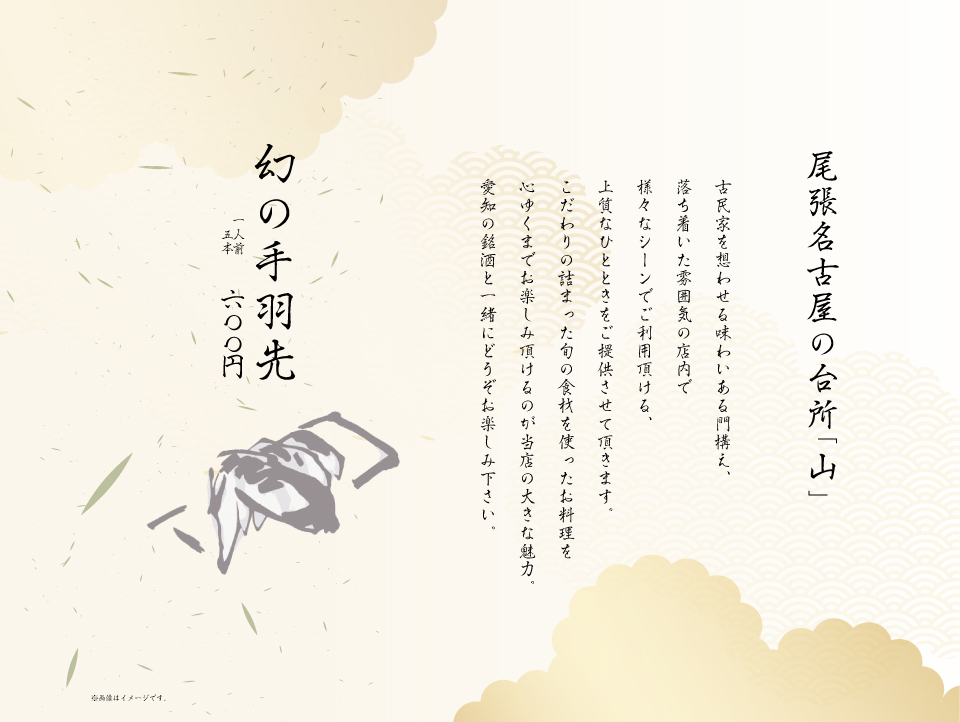 尾張名古屋の台所「山」
古民家を想わせる味わいある門構え、
落ち着いた雰囲気の店内で
様々なシーンでご利用頂ける、
上質なひとときをご提供させて頂きます。
こだわりの詰まった旬の食材を使ったお料理を
心ゆくまでお楽しみ頂けるのが当店の大きな魅力。
愛知の銘酒と一緒にどうぞお楽しみ下さい。
幻の手羽先
一人前
五本
六〇〇円
※画像はイメージです。